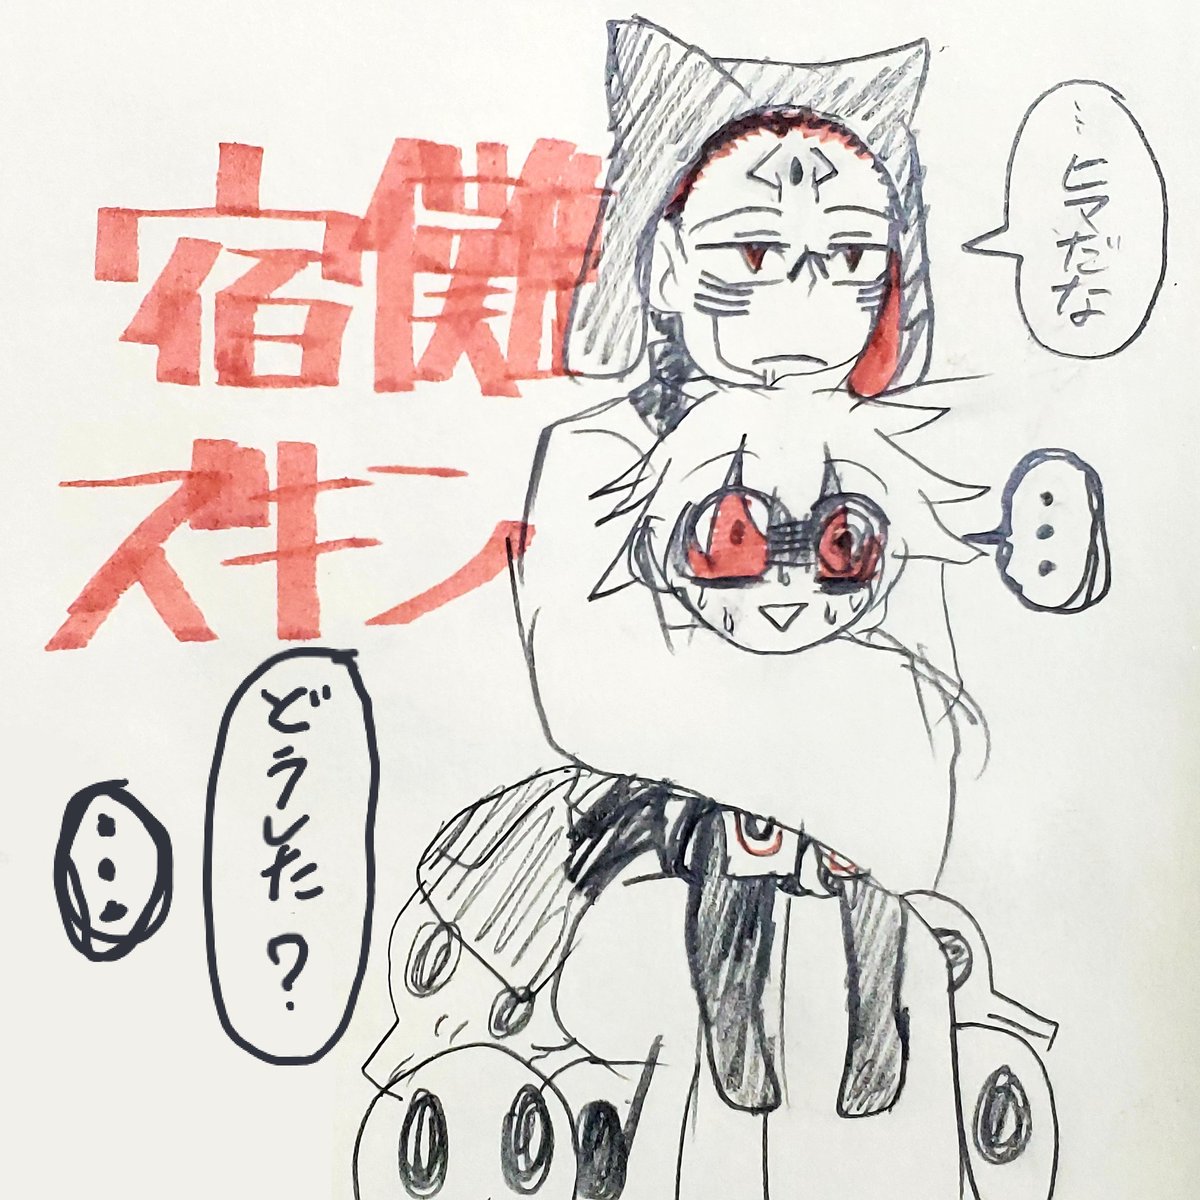 宿儺
スキン
…ヒマだな
…
どうした?
…